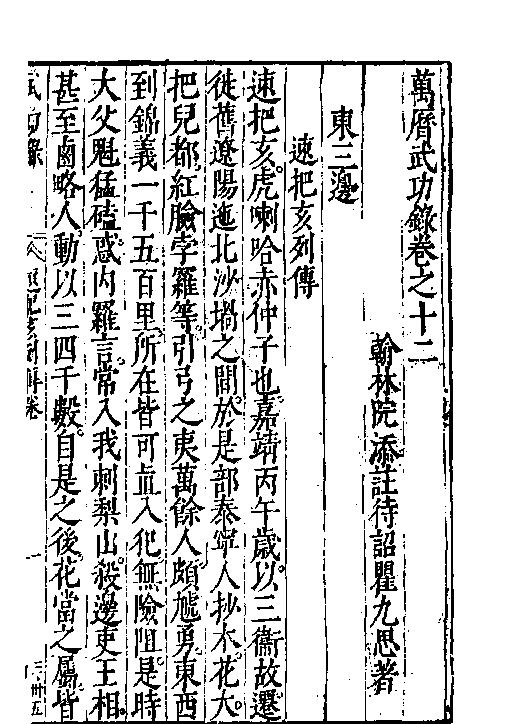 萬曆武功錄卷之十二
翰林院添註待詔瞿九思著
東三邊
速把亥列傳
速把亥虎喇哈赤仲子也嘉靖丙午歲以三衞故還
徙舊遼陽迤北沙堝之間於是部泰寧人抄木花大
把兒都紅臉孛羅等引弓之夷萬餘人頗尷勇東西
到錦義一千五百里所在皆可直入犯無險阻是時
大父魁猛磕惑內羅言常入我刺梨山殺邊吏王相
甚至鹵略人動以三四千數自是之後花當之屬皆